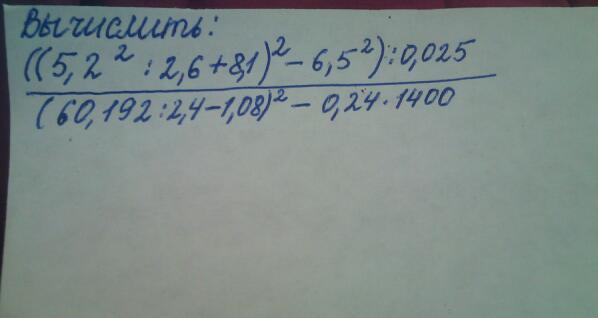 Вычислить:
((5,2² : 2,6 + 8,1)² - 6,5²) : 0,025
(60,192 : 2,4 - 1,08)² - 0,24 · 1400